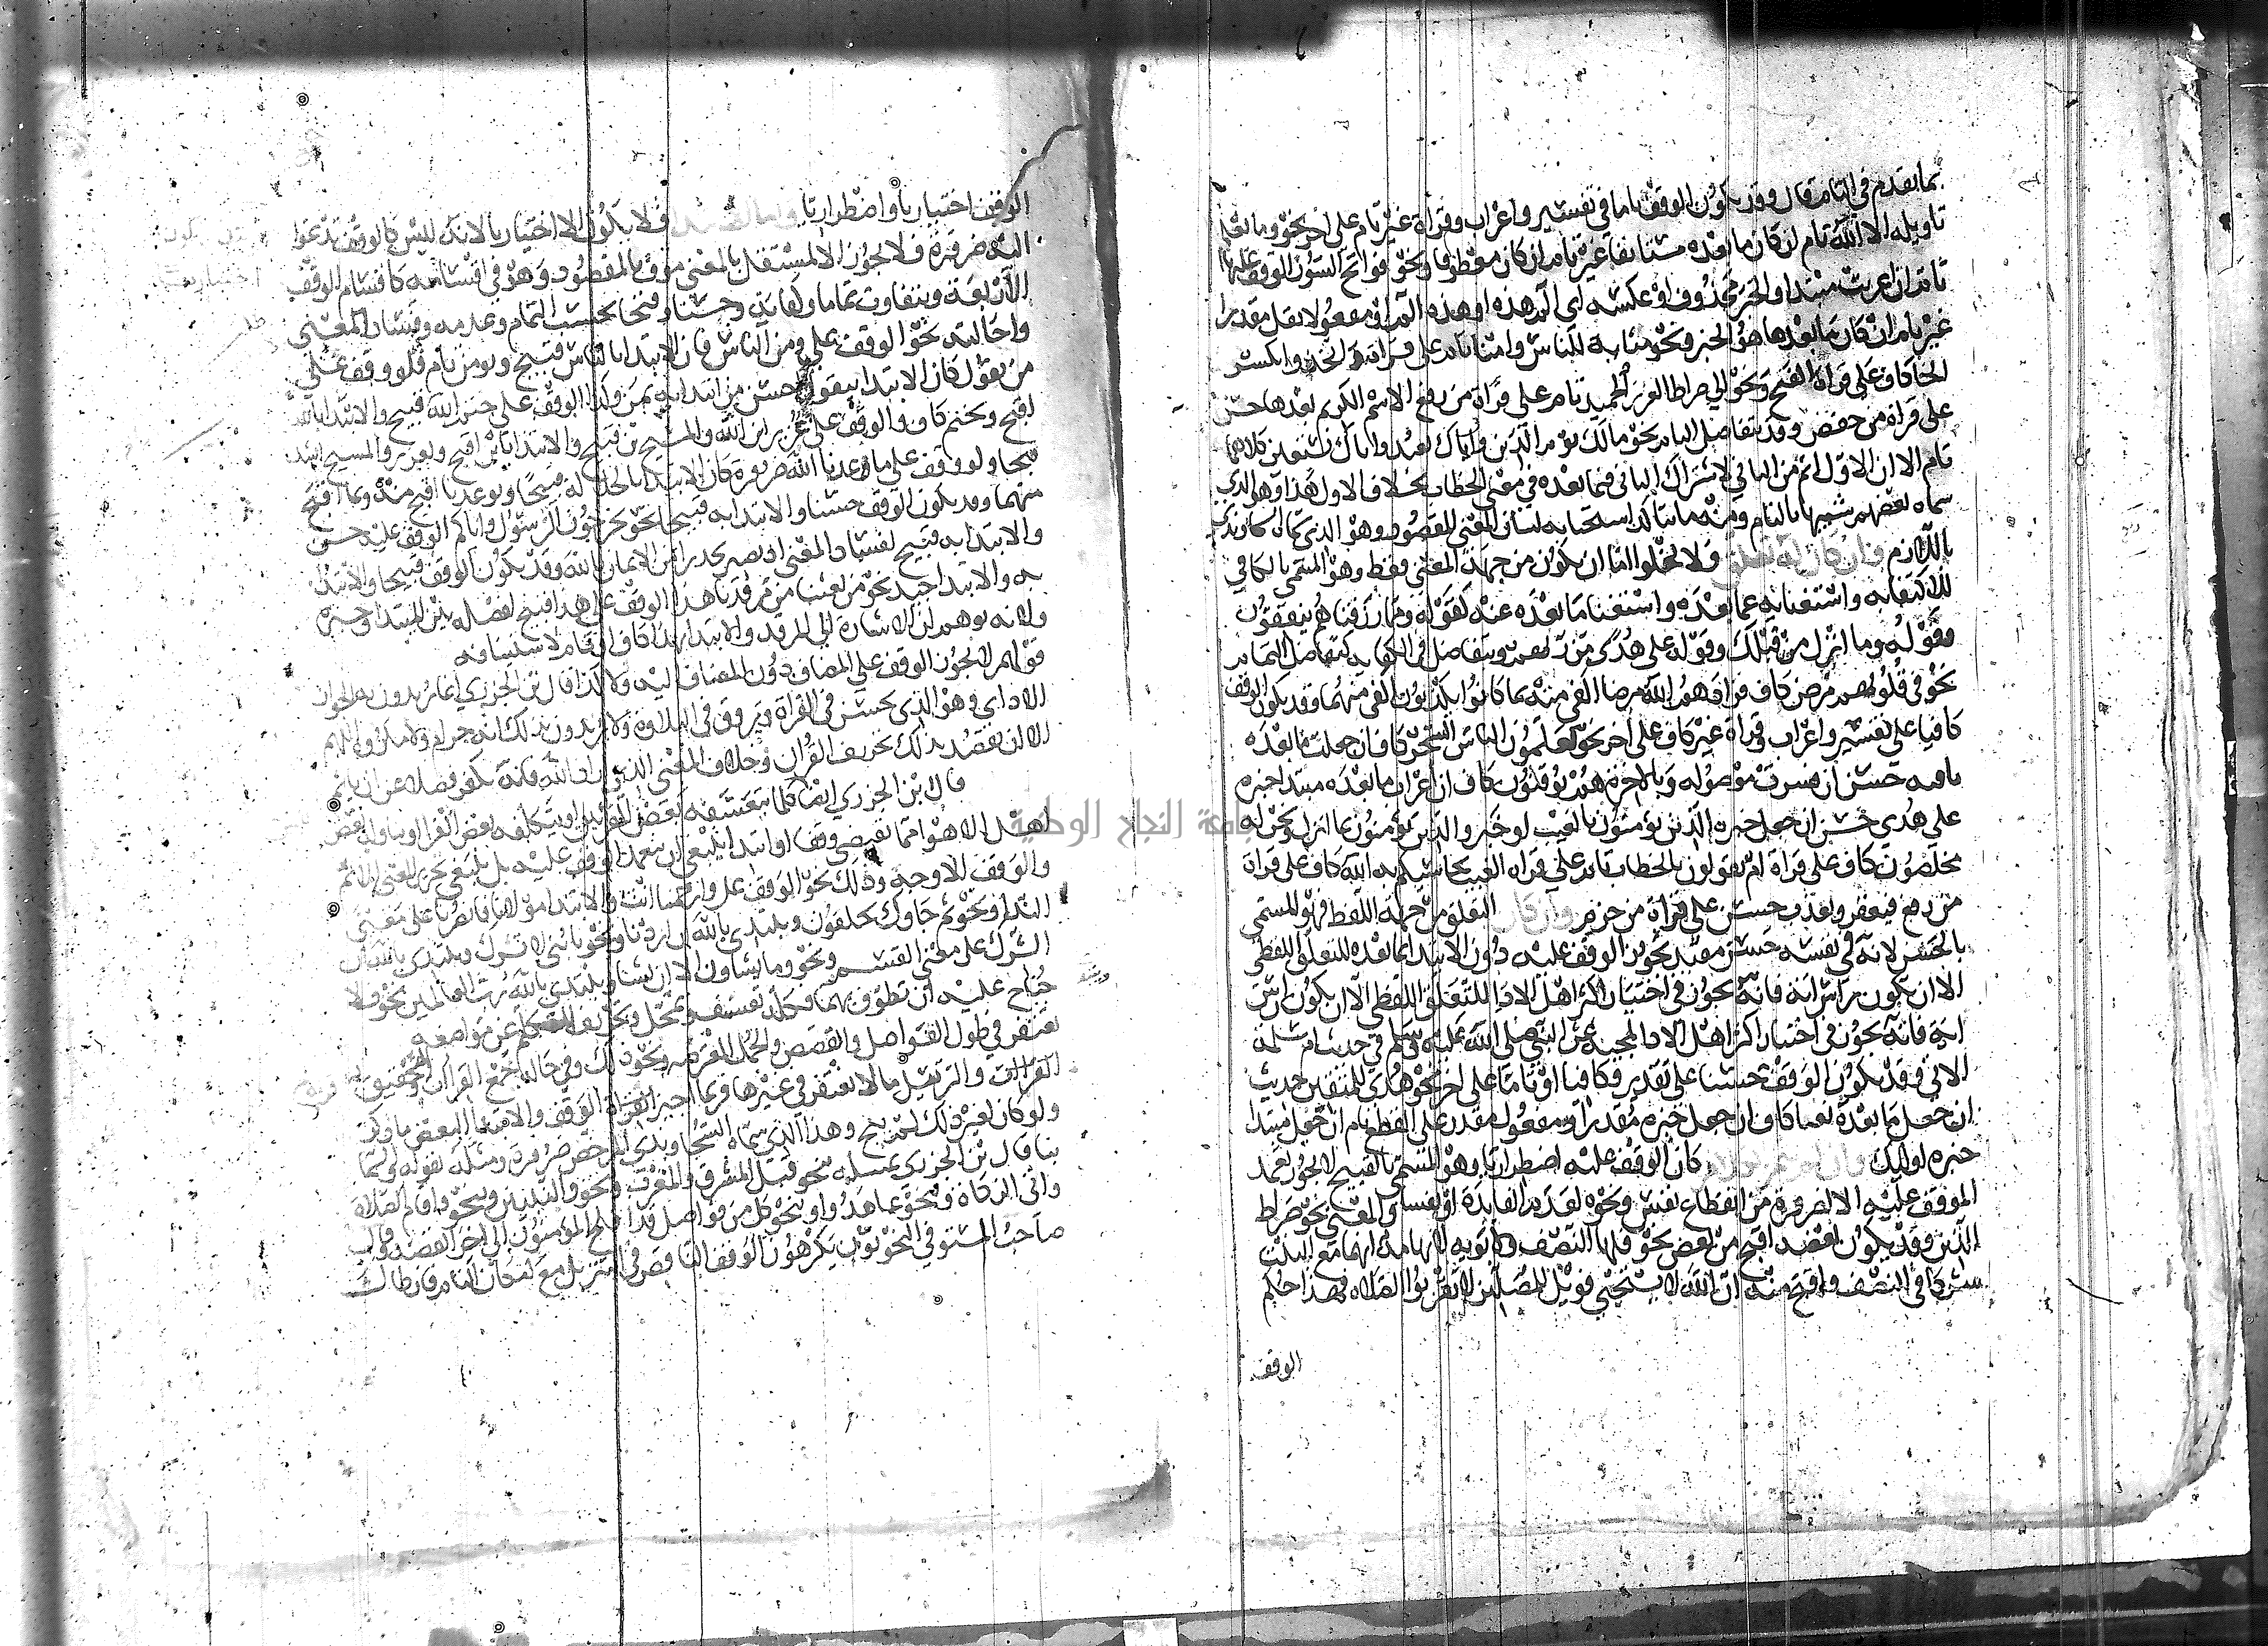 بما تقدم في التام قال وقد يكون الوقف تاما في تفسير واعراب وقراة غير تام على اخر نحو وما يعلم
تاويله الا الله تام ان كان ما بعده مستانفا غير تام ان كان معطوفا ونحو فواتح السور الوقف عليها
تام ان اعربت مبتدا والخبر محذوف او عكسه اي الم هذه او هذه الم او مفعولا بقل مقدرا
غير تام ان كان ما بعدها هو الخبر ونحو مثابة للناس وامنا تام على قراة واتخذوا بكسر
الخا كاف على قراة الفتح ونحو الي صراط العزيز الحميد تام على قراة من رفع الاسم الكريم بعدها حسن
على قراة من خفض وقد يتفاضل التام نحو مالك يوم الدين واياك نعبد واياك نستعين كلاهما
تام الا ان الاول اتم من الثاني لاشتراك الثاني فيما بعده في معنى الخطاب بخلاف الاول هذا وهو الذي
سماه بعضهم شبيها بالتام ومنه ما يتاكد استحبابه لبيان المعنى المقصود وهو الذي سماه السجاوندي
باللازم وان كان له تعلق ولا يخلوا اما ان يكون من جهة المعنى فقط وهو المسمي بالكافي
للاكتفا به واستغنائه عما بعده واستغنا ما بعده عنه كقوله ومما رزقناهم ينفقون
وقوله وما انزل من قبلك وقوله على هدى من ربهم ويتفاضل في الكفاية كتفاضل التمام
نحو في قلوبهم مرض كاف فزادهم الله مرضا اكفي منه بما كانوا يكذبون اكفي منهما وقد يكون الوقف
كافيا على تفسير واعراب وقراة غير كاف على اخر نحو يعلمون الناس السحر كاف ان جعلت ما بعده
نافيه حسن ان فسرت موصوله وبالاخرة هم يوقنون كاف ان اعراب ما بعده مبتدا خبره
على هدى حسن ان جعل خبره الذين يؤمنون بالغيب او خبر والذين يؤمنون بما انزل ونحن له
مخلصون كاف على قراة ام تقولون بالخطاب تام على قراه الغيب يحاسبكم به الله كاف على قراة
من رفع فيغفر ويعذب حسن على قراة من جزم وان كان التعلق من جهة اللفظ فهو المسمى
بالحسن لانه في نفسه حسن مفيد يجوز الوقف عليه دون الابتدا بما بعده للتعلق اللفظي
الا ان يكون راس اية فانه يجوز في اختيار اكثر اهل الادا للتعلق اللفظي الا ان يكون راس
اية فانه يجوز في اختيار اكثر اهل الادا لمجيه عن النبي صلى الله عليه وسلم في حديث ام سلمة
الاتي وقد يكون الوقف حسنا على تقدير وكافيا او تاما على اخر نحو هدى للمتقين حديث
ان جعل ما بعده نعتا كاف ان جعل خبره مقدرا او مفعول مقدر على القطع تام ان جعل مبتدا
خبره اوليك كان الوقف عليه اضطراريا وهو المسمى بالقبيح لا يجوز تعمد
الموقف عليه الا لضرورة من انقطاع نفس ونحوه لعدم الفايدة او لفساد المعنى نحو صراط
الذين وقد يكون بعضه اقبح من بعض نحو فلها النصف ولابويه لايهامه انهما مع البنت
شركا في النصف واقبح منه ان الله لا يستحي فويل للمصلين لا تقربوا الصلاه فهذا حكم
الوقف
الوقف اختياريا واضطراريا ولا يكون الا اختياريا لانه ليس كالوقف تدعوا
اليه ضرورة فلا يجوز الا لمستقل بالمعنى موف بالمقصود وهو في اقسامه كاقسام الوقف
الاربعة ويتفاوت تماما وكفاية وحسنا وقبحا بحسب التمام وعدمه وفساد المعنى
واحالته نحو الوقف على ومن الناس فان الابتدا بالناس قبيح وبومن تام فلو وقف على
من يقول كان الابتدا بيقول احسن من ابتدايه بمن وكذا الوقف على ختم الله قبيح والابتدا بالله
اقبح وبختم كاف والوقف على عزير ابن الله والمسيح بن قبيح والابتدا بابن اقبح وبعزير والمسيح اشد
قبحا ولو وقف على ما وعدنا الله ضرورة كان الابتدا بالجلالة قبيحا وبوعدنا اقبح منه وبما اقبح
منهما وقد يكون الوقف حسنا والابتدا به قبيحا نحو يخرجون الرسول واياكم الوقف عليه حسن
والابتدا به قبيح لفساد المعنى اذ يصير تحذيرا من الايمان بالله وقد يكون الوقف قبيحا والابتدا
به والابتدا جيد نحو من بعثنا من مرقدنا هذا الوقف على هذا قبيح لفصله بين المبتدا وخبره
ولانه يوهم ان الاشارة الي المرقد والابتدا بهذا كاف او تام لاستينافه
قولهم لا يجوز الوقف علي المضاف دون المضاف اليه ولا كذا قال بن الجزري انما يريدون به الجواز
الاداي وهو الذي يحسن في القراة ويروق في التلاوة ولا يريدون بذلك انه حرام ولا مكروه اللهم
الا ان يقصد بذلك تحريف القران وخلاف المعنى الذي اراد الله فانه يكفر فضلا عن ان ياثم
قال بن الجزري ايضا كلما يتعسفه بعض المعربين او يتكلفه بعض القرا او يتاوله بعض
اهل الاهوا مما يقتضي وقفا او ابتدا ينبغي ان يتعمد الوقف عليه بل ينبغي تحري المعنى الاتم
والوقف الاوجه وذلك نحو الوقف على وارحمنا انت والابتدا مولانا فانصرنا على معنى
الندا ونحو ثم جاوك يحلفون ويبتدي بالله ان اردنا ونحو يا بني لا تشرك ويبتدي بالله ان
الشرك على معنى القسم ونحو وما تشاون الا ان يشا ويبتدي بالله رب العالمين ونحو فلا
جناح عليه ان تطوف بهما فكله تعسف وتمحل وتحريف للكلم عن مواضعه
يغتفر في طول الفواصل والقصص والجمل المعترضه ونحو ذلك وفي حالة جمع القراات
القراات والترتيل ما لا يغتفر في غيرها فربما اجيز الوقف والابتدا لبعض ما ذكر
ولو كان لغير ذلك لم يبح وهذا الذي سماه السجاوندي المرخص ضرورة ومثله بقوله والسما
بنا قال بن الجزري تمثيله بنحو قبل المشرق والمغرب ونحو والنبيين ونحو واقام الصلاة
واتى الزكاة ونحو عاهدوا ونحو كل من فواصل قد افلح المؤمنون الي اخر القصه وقال
صاحب المستوفي النحويون يكرهون الوقف الناقص في التنزيل مع امكان التام فان طال
جامعة النجاح الوطنية